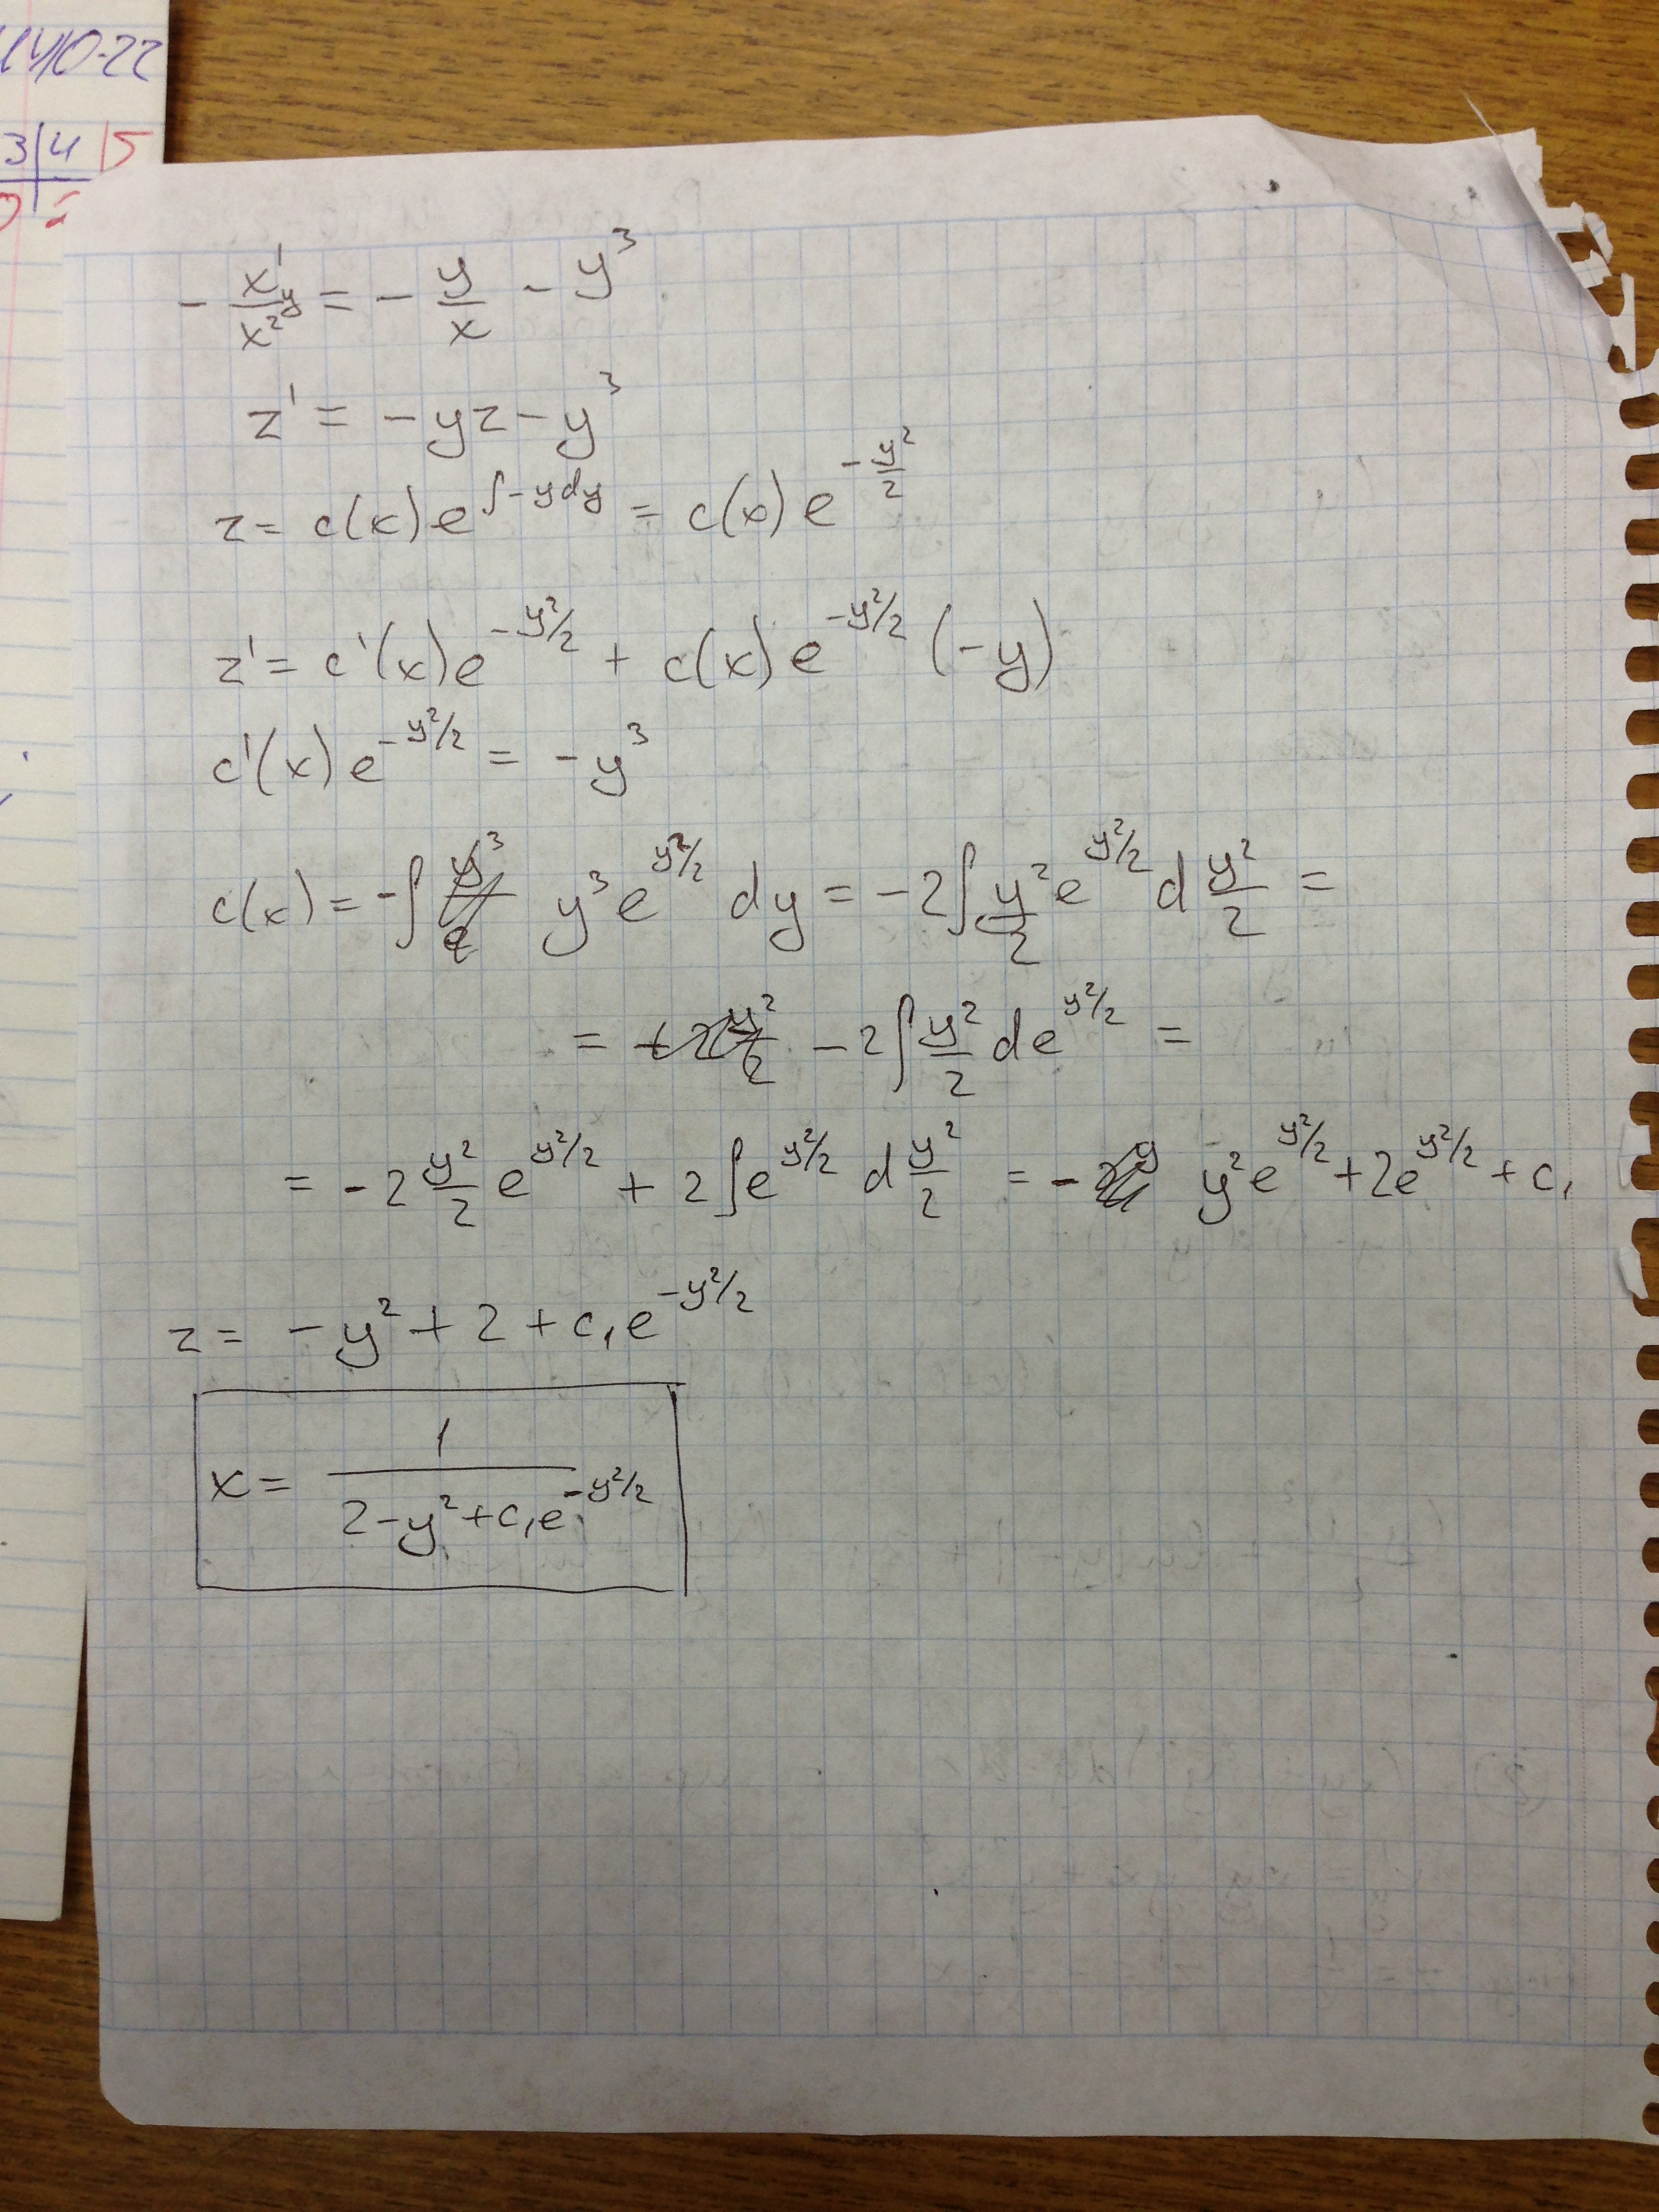 3 | 4 | 5
- x'y/x² = - y/x - y³
z' = - yz - y³
z = c(x) e^(∫-ydy) = c(x) e^(-y²/2)
z' = c'(x) e^(-y²/2) + c(x) e^(-y²/2) (-y)
c'(x) e^(-y²/2) = - y³
c(x) = -∫ y³ e^(y²/2) dy = -2∫ y²/2 e^(y²/2) d y²/2 =
= -2∫ y²/2 de^(y²/2) =
= -2 y²/2 e^(y²/2) + 2∫e^(y²/2) d y²/2 = - y² e^(y²/2) + 2e^(y²/2) + c₁
z = - y² + 2 + c₁e^(-y²/2)
x = 1/(2-y²+c₁e^(-y²/2))